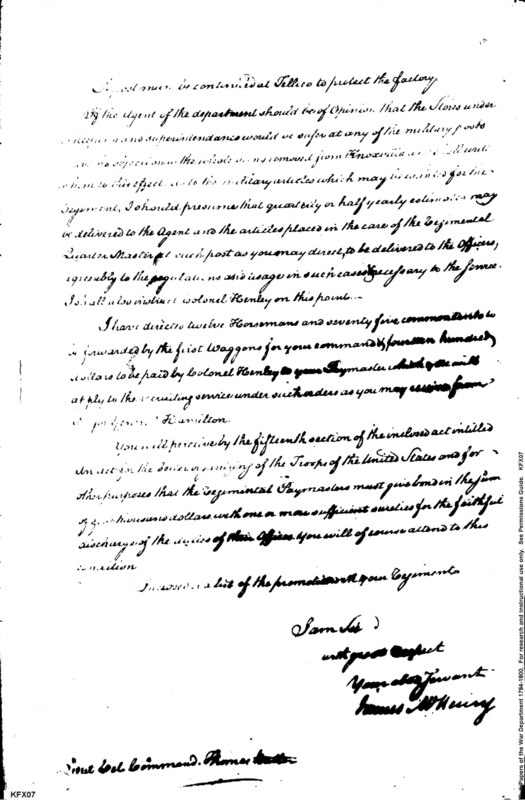 A post must be continued at Tellico to protect the factory.
If the Agent of the department should be of Opinion that the Stores under
and superintendance would be safer at any of the military posts
removed from Knoxville
to this effect. As to the military articles which may be wanted for the
Regiment, I should presume that quarterly or half yearly estimates may
be delivered to the Agent and the articles placed in the care of the Regimental
Quarter Master at such post as you may direct, to be delivered to the Officers,
agreeably to the regulations and usage in such cases necessary to the service.
I shall also instruct Colonel Henley on this point.
I have directed twelve Horsemans and seventy five common tents to
be forwarded by the first Waggons for your command & fourteen hundred
dollars to be paid by Colonel Henley to your Paymaster which you will
apply to the recruiting service under such orders as you may receive from
Major General Hamilton.
You will perceive by the fifteenth section of the inclosed act intitled
An act for the better organizing of the Troops of the United States and for
other purposes that the Regimental Paymasters must give bond in the sum
of thousand dollars, with one or more sufficient sureties for the faithful
discharge of the duties of their Offices. You will of course attend to this
condition
Inclosed is a list of the promotions in your Regiment
I am Sir
with great respect
Your obed Servant
James McHenry
Lieut Col Command. Thomas Butler
KFX07
Papers of the War Department 1784-1800. For research and instructional use only. See Permissions Guide. KFX07